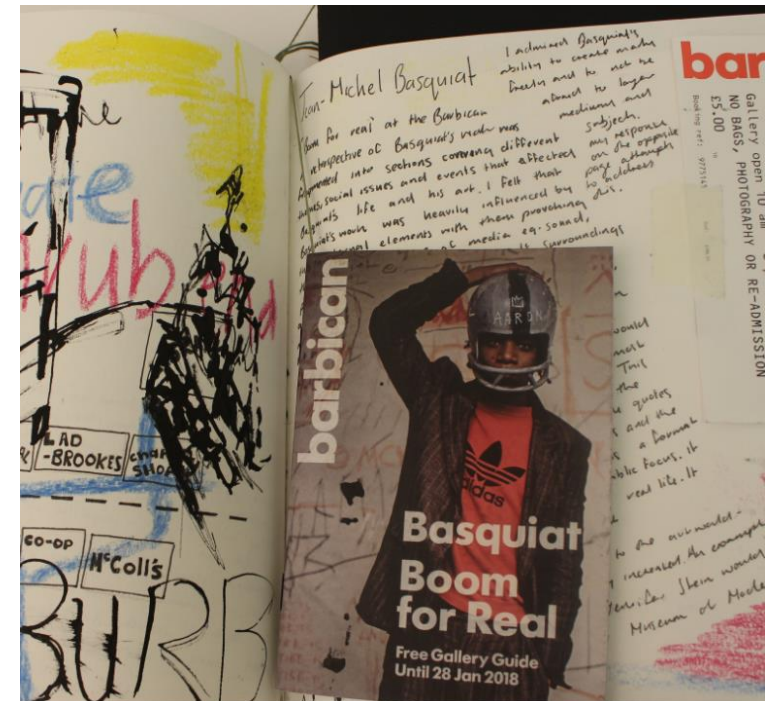 ate
urb and
LAD
-BROOKES
CHARITY
SHOP
CO-OP
McColl's
BURB
Jean-Michel Basquiat
'Boom for real' at the Barbican
a retrospective of Basquiat's work was
fragmented into sections covering different
themes, social issues and events that affected
Basquiat's life and his art. I felt that
Basquiat's work was heavily influenced by
elements with them provoking
of media eg. sound,
surroundings
I admired Basquiat's
ability to create marks
freely and to not be
afraid to layer
mediums and
subject.
my response
on the opposite
page attempts
to address
this.
would
most
This
the
quotes
and the
a format
public focus. it
real life. It
to the air would
increased. An example
Jennifer Stein would
Museum of Mode
bar
Gallery open 10 am
NO BAGS, PHOTOGRAPHY OR RE-ADMISSION
£5.00
Booking ref:
barbican
AARON
adidas
Basquiat
Boom
for Real
Free Gallery Guide
Until 28 Jan 2018